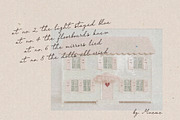 at no 2 the light stayed blue
at no 4 the floorboards knew
at no 6 the mirrors lied
at no 8 the dolls all cried
by